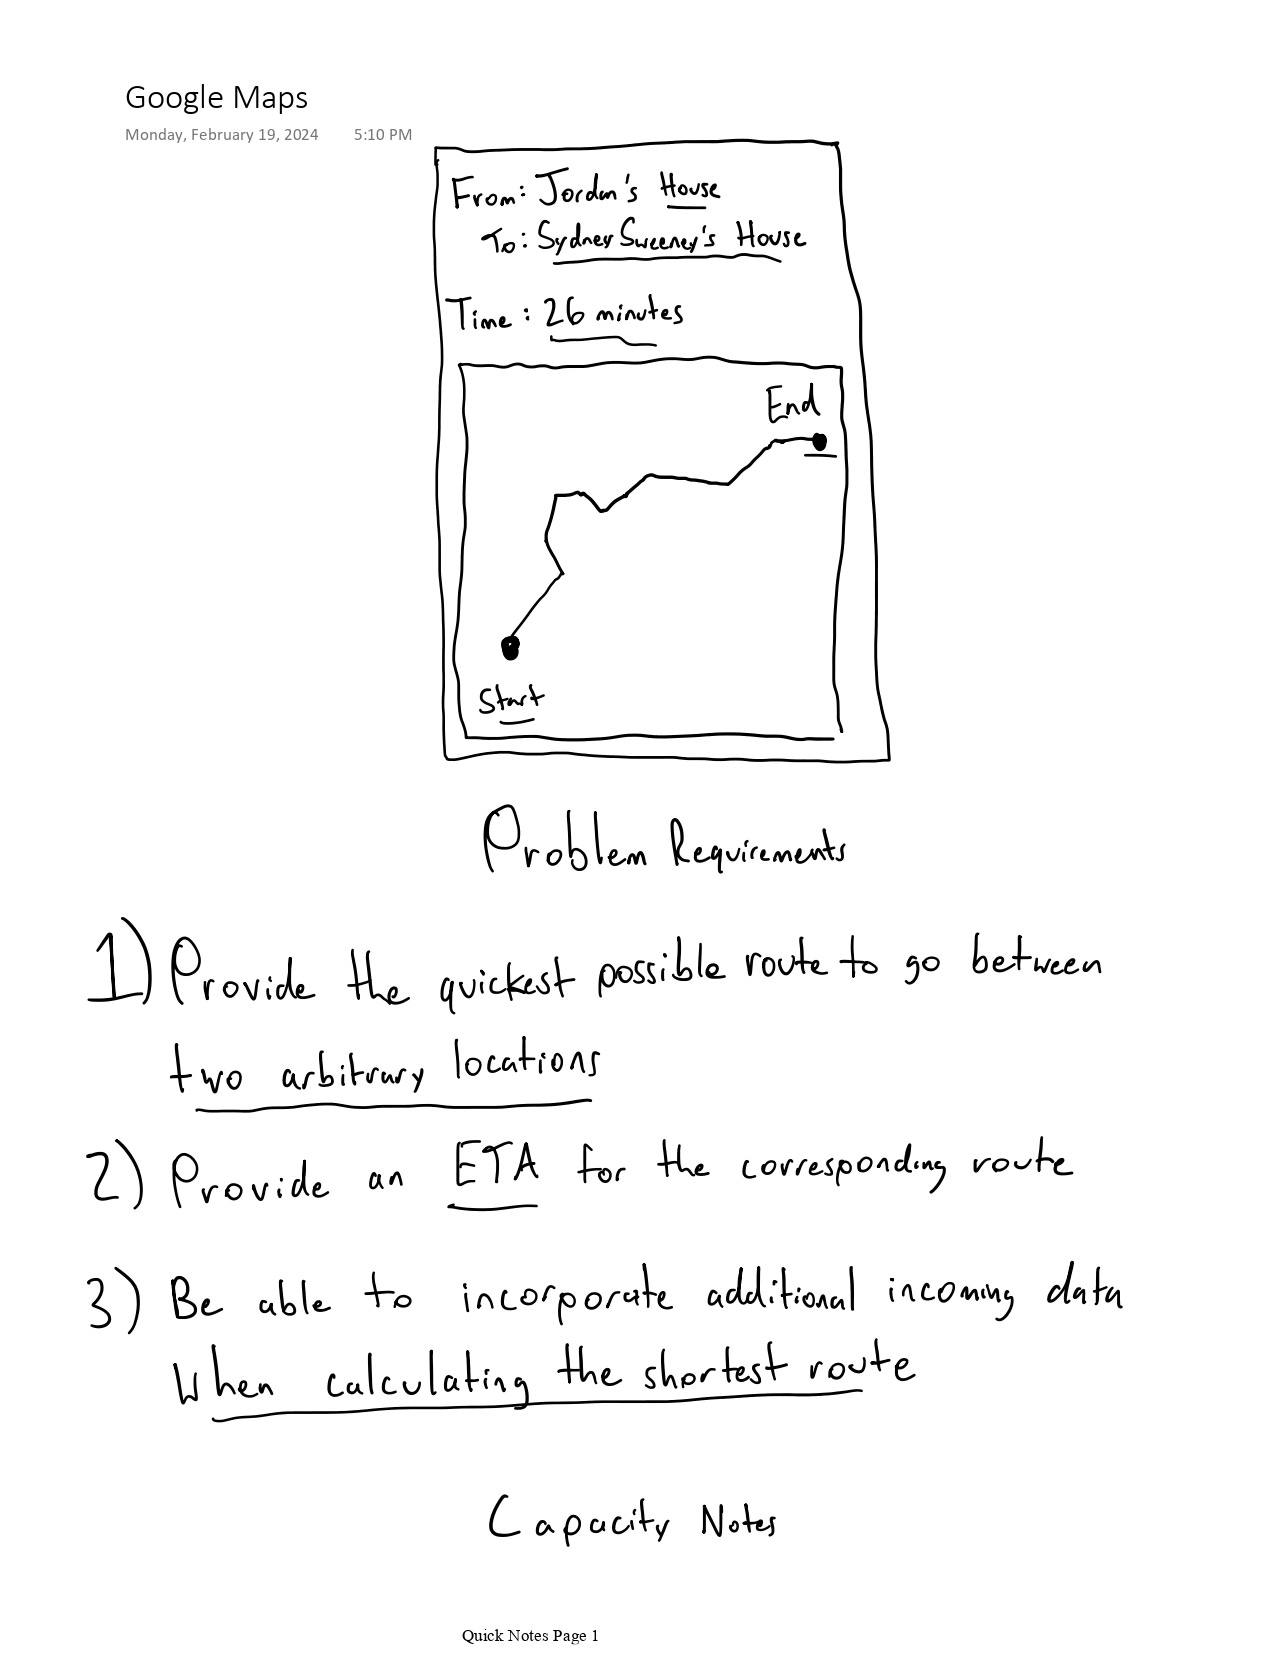 Google Maps
Monday, February 19, 2024 5:10 PM
From: Jordan's House
To: Sydney Sweeney's House
Time: 26 minutes
End
Start
Problem Requirements
1) Provide the quickest possible route to go between
two arbitrary locations
2) Provide an ETA for the corresponding route
3) Be able to incorporate additional incoming data
when calculating the shortest route
Capacity Notes
Quick Notes Page 1